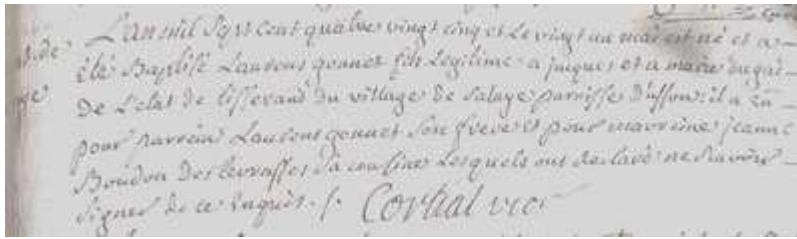 L'an mil Sept cent quatre vingt cinq et Le vingt un mai est né et a
été Baptisé Laurens gonnet fils Legitime a jacques et a marie
De L'etat de tisserand du village De Salaye parrisse D'usson: il a eu
pour parrein Laurens gonnet Son frere et pour marraine jeanne
Boudon Des Sa cousine Lesquels ont declaré ne Savoir
Signer de ce Enquis ./. Cortial vic